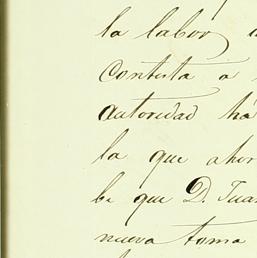 la labor
contesta a
autoridad ha
la que ahor
be que D. Juan
nueva toma